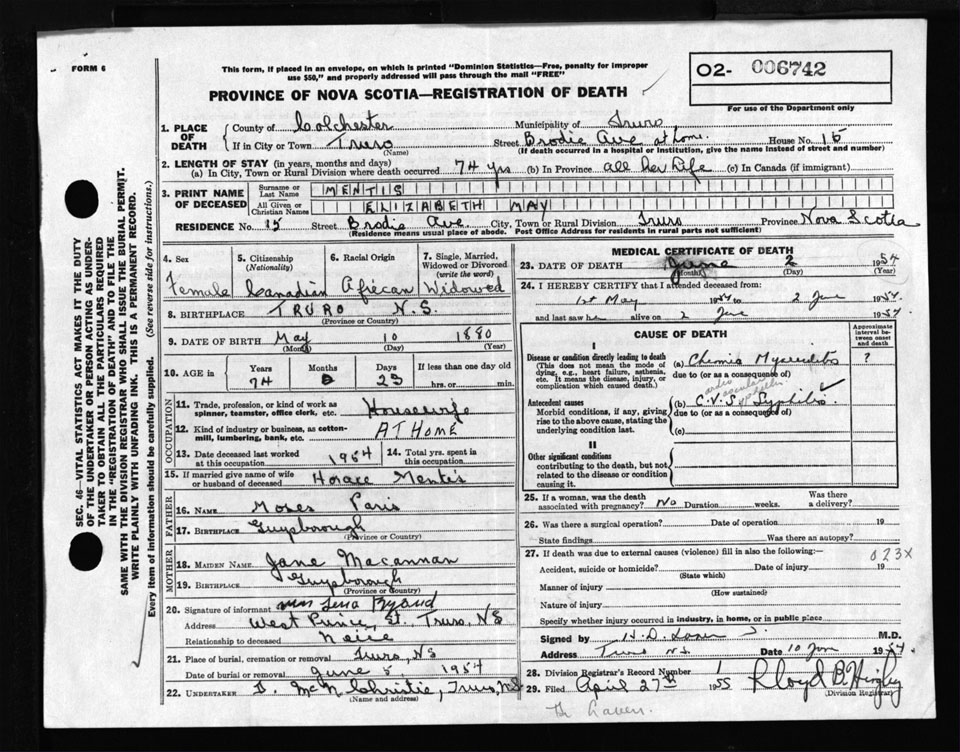 FORM 6
This form, if placed in an envelope, on which is printed "Dominion Statistics—Free, penalty for improper
use $50," and properly addressed will pass through the mail "FREE"
PROVINCE OF NOVA SCOTIA—REGISTRATION OF DEATH
O2- 006742
For use of the Department only
1. PLACE OF DEATH
County of Colchester Municipality of Truro
If in City or Town Truro Street Brodie Ave at home. House No. 15
(Name) (If death occurred in a hospital or institution, give the name instead of street and number)
2. LENGTH OF STAY (in years, months and days)
(a) In City, Town or Rural Division where death occurred 74 yrs (b) In Province all her life (c) In Canada (if immigrant)
3. PRINT NAME OF DECEASED
Surname or Last Name MENTIS
All Given or Christian Names ELIZABETH MAY
RESIDENCE No. 15 Street Brodie Ave. City, Town or Rural Division Truro Province Nova Scotia
(Residence means usual place of abode. Post Office Address for residents in rural parts not sufficient)
SEC. 46—VITAL STATISTICS ACT MAKES IT THE DUTY
OF THE UNDERTAKER OR PERSON ACTING AS UNDER-
TAKER TO OBTAIN ALL THE PARTICULARS REQUIRED
IN THE "REGISTRATION OF DEATH" AND TO FILE THE
SAME WITH THE DIVISION REGISTRAR WHO SHALL ISSUE THE BURIAL PERMIT.
WRITE PLAINLY WITH UNFADING INK. THIS IS A PERMANENT RECORD.
Every item of information should be carefully supplied. (See reverse side for instructions.)
4. Sex
5. Citizenship (Nationality)
6. Racial Origin
7. Single, Married, Widowed or Divorced (write the word)
Female Canadian African Widowed
8. BIRTHPLACE TRURO N.S.
(Province or Country)
9. DATE OF BIRTH May 10 1880
(Month) (Day) (Year)
10. AGE in
Years Months Days If less than one day old
74 0 23 hrs. or min.
OCCUPATION
11. Trade, profession, or kind of work as
spinner, teamster, office clerk, etc. Housewife
12. Kind of industry or business, as cotton-
mill, lumbering, bank, etc. AT HOME
13. Date deceased last worked
at this occupation 1954
14. Total yrs. spent in
this occupation
15. If married give name of wife
or husband of deceased Horace Mentis
FATHER
16. NAME Moses Paris
17. BIRTHPLACE Guysborough
(Province or Country)
MOTHER
18. MAIDEN NAME Jane Macannan
19. BIRTHPLACE Guysborough
(Province or Country)
20. Signature of informant Mrs Lena
Address West Prince St. Truro, NS
Relationship to deceased neice
21. Place of burial, cremation or removal Truro, NS
Date of burial or removal June 5 1954
22. UNDERTAKER McN Christie, Truro, N.S.
(Name and address)
MEDICAL CERTIFICATE OF DEATH
23. DATE OF DEATH June 2 1954
(Month) (Day) (Year)
24. I HEREBY CERTIFY that I attended deceased from
1st May 1954 to 2 June 1954.
and last saw her alive on 2 June 1954
CAUSE OF DEATH
Approximate interval between onset and death
I
Disease or condition directly leading to death
(This does not mean the mode
of dying, e.g., heart failure, asthenia,
etc. It means the disease, injury, or
complication which caused death.)
(a) Chronic Myocarditis ?
due to (or as a consequence of)
Antecedent causes
Morbid conditions, if any, giving
rise to the above cause, stating the
underlying condition last.
cardio vascular syphilis
(b) C.V.S. Syphilis
due to (or as a consequence of)
(c)
II
Other significant conditions
contributing to the death, but not
related to the disease or condition
causing it.
25. If a woman, was the death
associated with pregnancy? No Duration weeks. Was there
a delivery?
26. Was there a surgical operation? Date of operation 19
State findings Was there an autopsy?
27. If death was due to external causes (violence) fill in also the following:— 023X
Accident, suicide or homicide? Date of injury 19
(State which)
Manner of injury
(How sustained)
Nature of injury
Specify whether injury occurred in industry, in home, or in public place
Signed by H.D. M.D.
Address Truro N.S. Date 10 June 1954
28. Division Registrar's Record Number 1
29. Filed April 27th 1955
(Division Registrar)